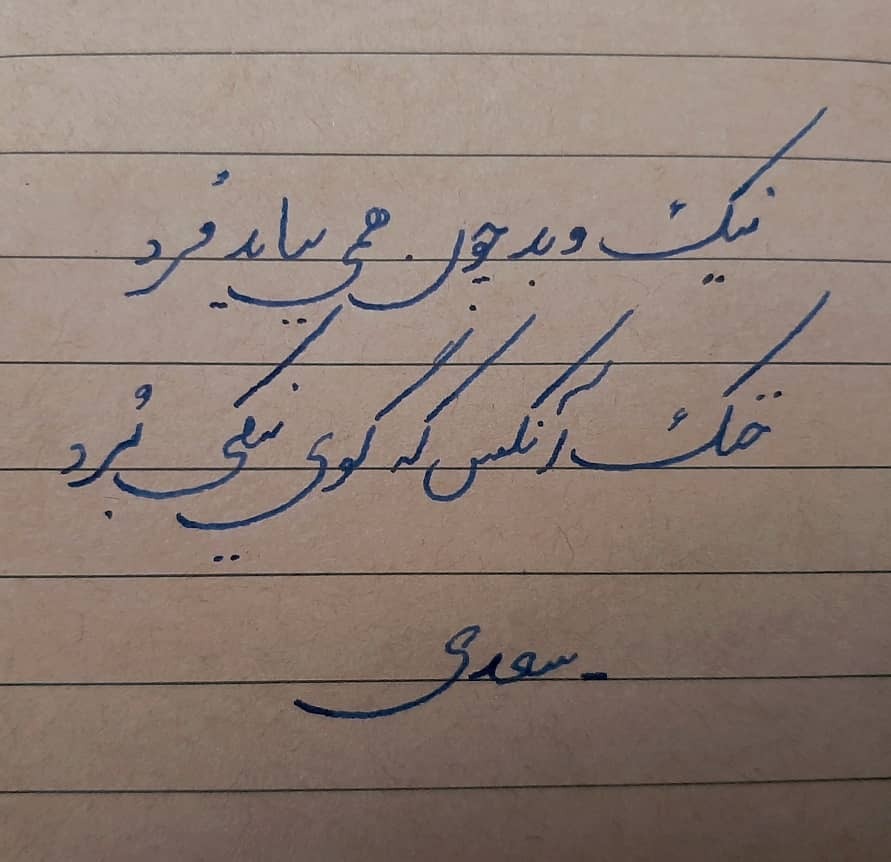 نیک و بد چون همی بباید مُرد
خنک آنکس که گوی نیکی بُرد
ـ سعدی